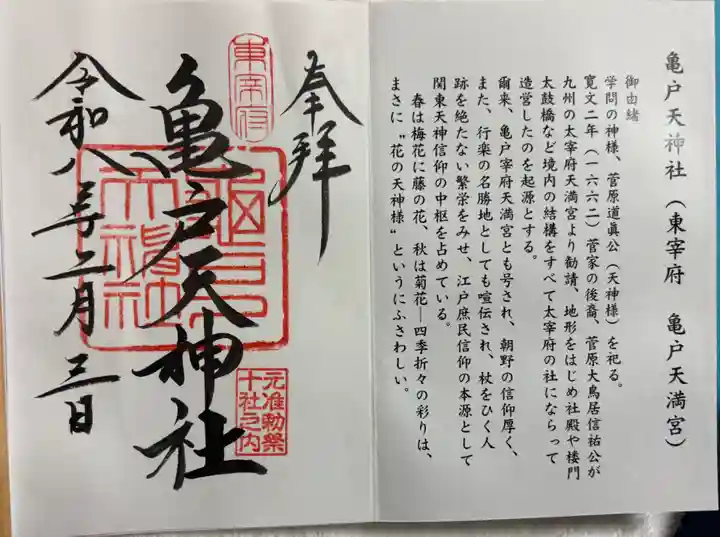 亀戸天神社(東宰府 亀戸天満宮)
御由緒
学問の神様、菅原道眞公(天神様)を祀る。
寛文二年(一六六二)菅家の後裔、菅原大鳥居信祐公が
九州の太宰府天満宮より勧請、地形をはじめ社殿や楼門
太鼓橋など境内の結構をすべて太宰府の社にならって
造営したのを起源とする。
爾来、亀戸宰府天満宮とも号され、朝野の信仰厚く、
また、行楽の名勝地としても喧伝され、杖をひく人
跡を絶たない繁栄をみせ、江戸庶民信仰の本源として
関東天神信仰の中枢を占めている。
春は梅花に藤の花、秋は菊花―四季折々の彩りは、
まさに〝花の天神様〟というにふさわしい。
奉拝
東宰府
亀戸天神社
元准勅祭
十社之内
令和八年二月三日